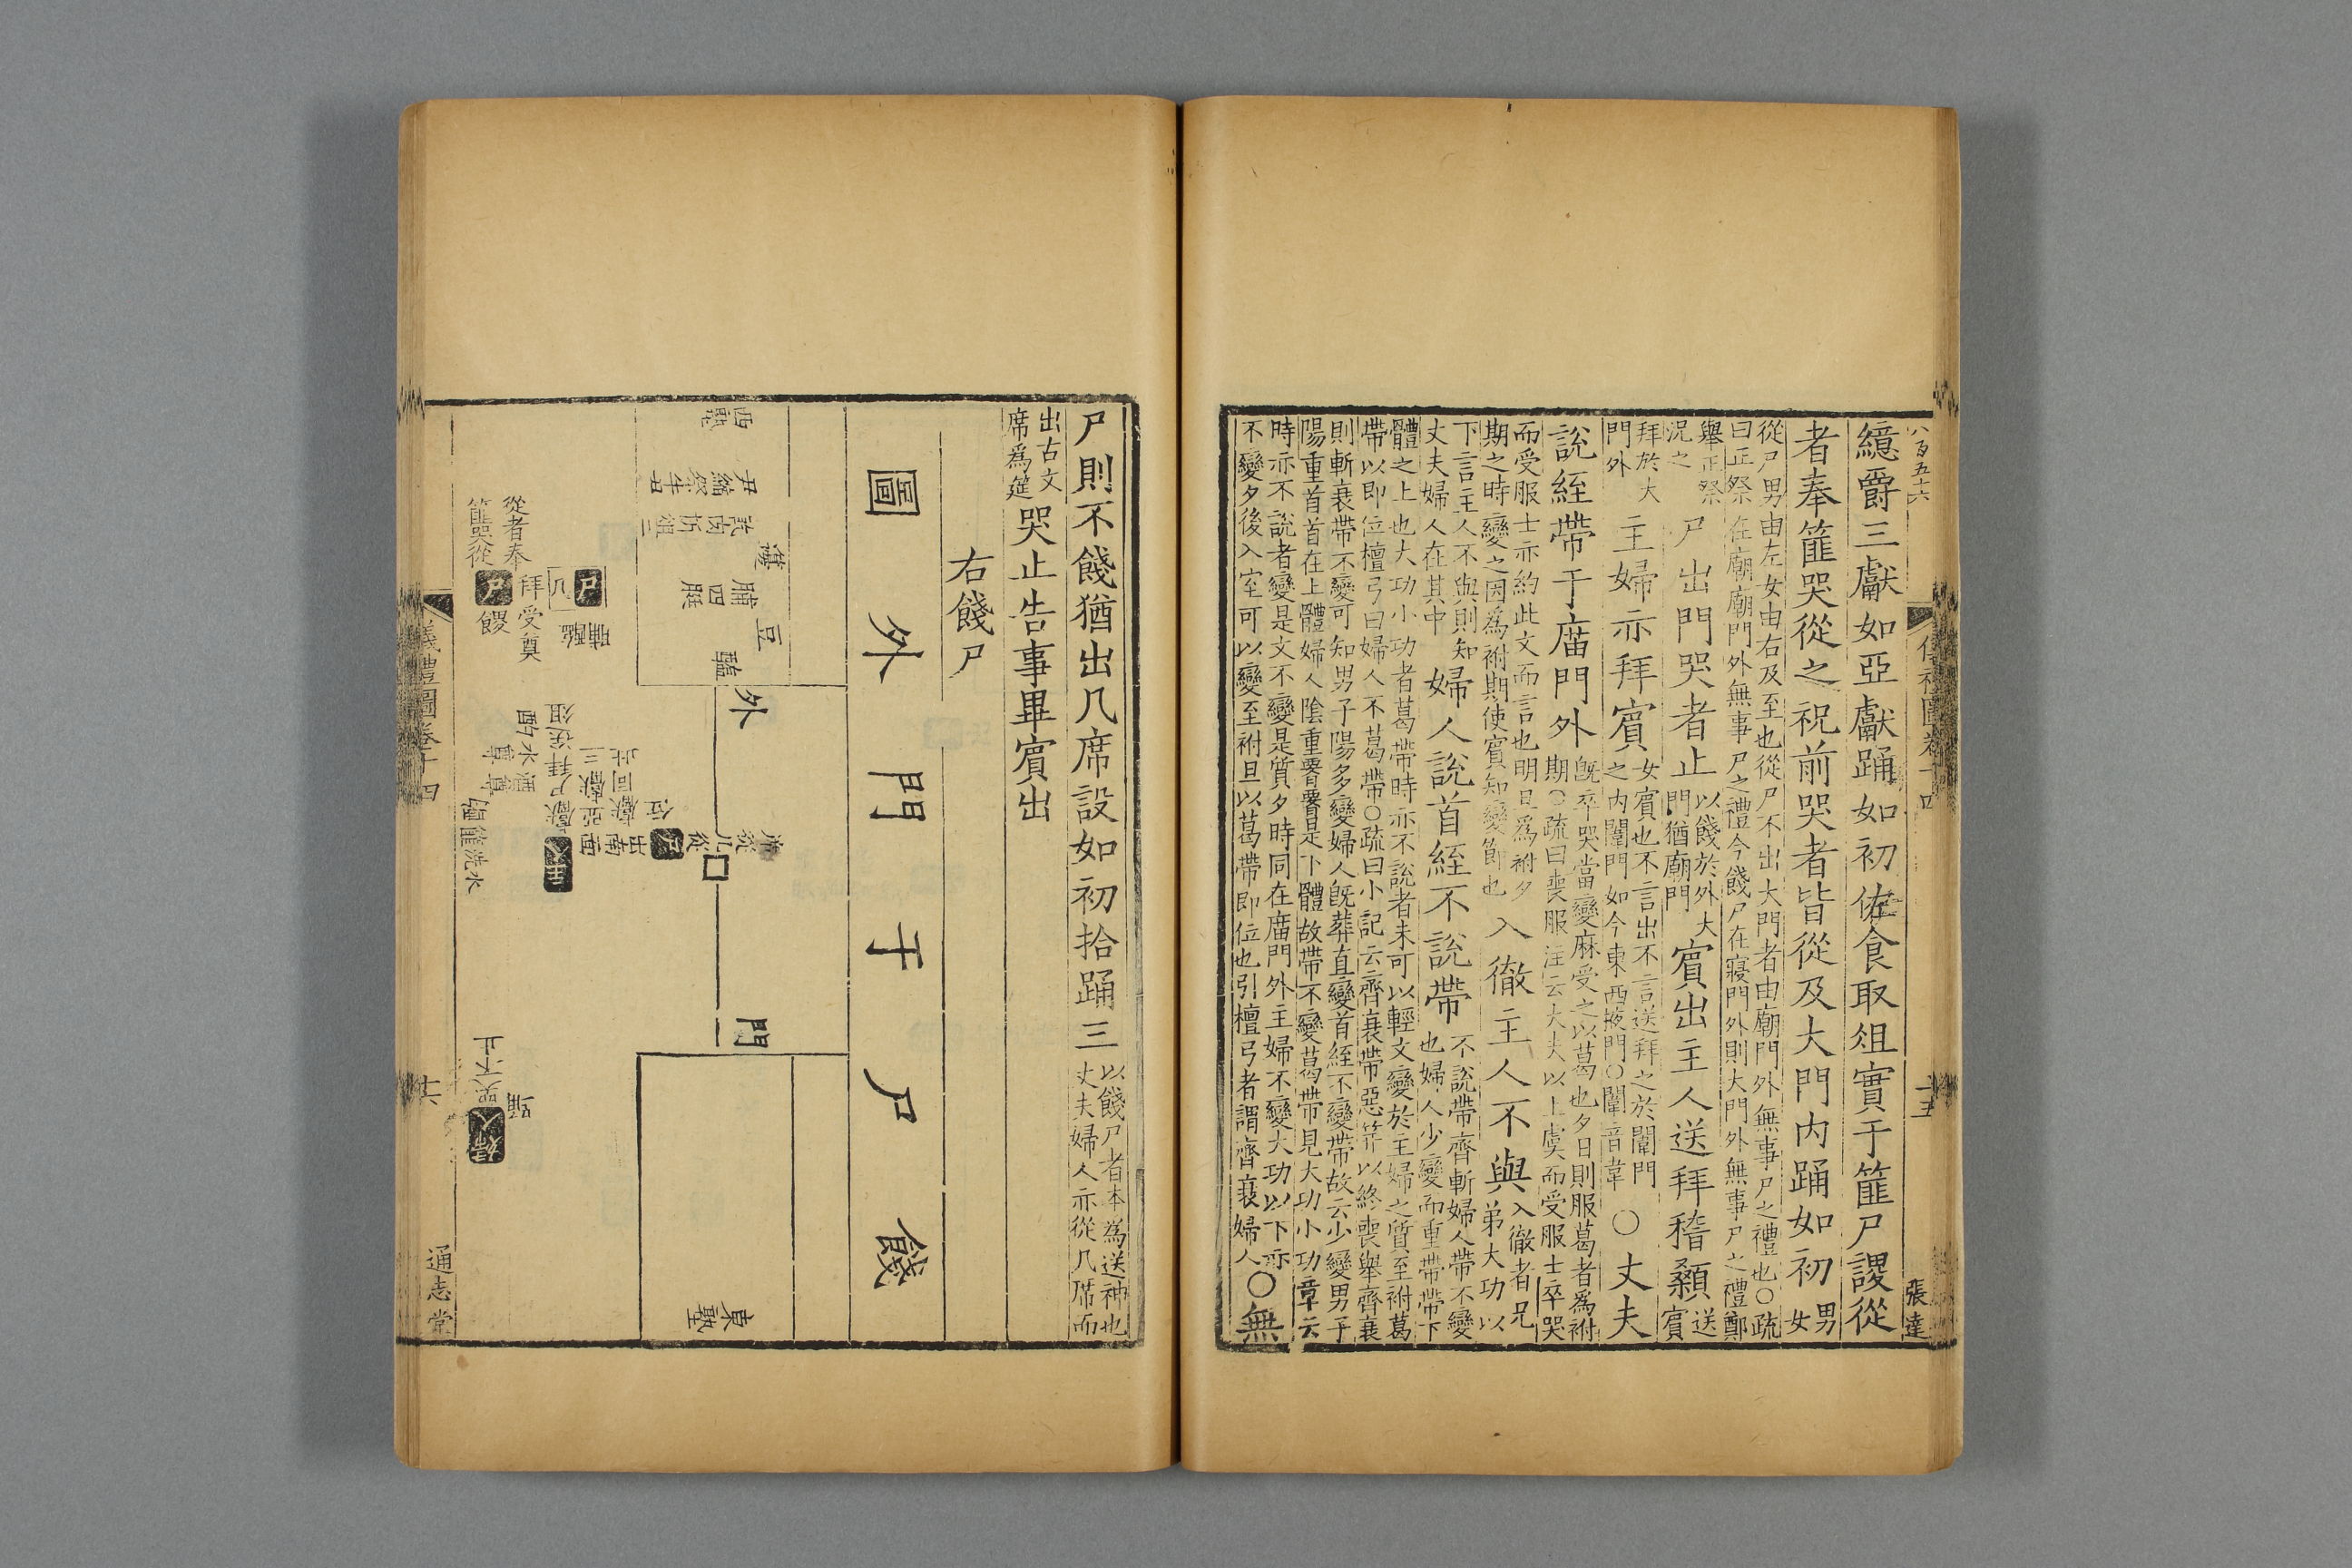 八百五十六
儀禮圖卷十四
十五
張達
繶爵三獻如亞獻踊如初佐食取俎實于篚尸謖從
者奉篚哭從之祝前哭者皆從及大門内踊如初男
女
從尸男由左女由右及至也從尸不出大門者由廟門外無事尸之禮也○疏
曰正祭在廟廟門外無事尸之禮今餞尸在寢門外則大門外無事尸之禮鄭
舉正祭
況之
尸出門哭者止
以餞於外大
門猶廟門
賓出主人送拜稽顙
送
賓
拜於大
門外
主婦亦拜賓
女賓也不言出不言送拜之於闈門
之内闈門如今東西掖門○闈音韋
○丈夫
說絰帶于廟門外
既卒哭當變麻受之以葛也夕日則服葛者爲祔
期○疏曰喪服注云大夫以上虞而受服士卒哭
而受服士亦約此文而言也明旦爲祔夕
期之時變之因爲祔期使賓知變節也
入徹主人不與
入徹者兄
弟大功以
下言主人不與則知
丈夫婦人在其中
婦人說首絰不說帶
不說帶齊斬婦人帶不變
也婦人少變而重帶帶下
體之上也大功小功者葛帶時亦不說者未可以輕文變於主婦之質至祔葛
帶以即位檀弓曰婦人不葛帶○疏曰小記云齊衰帶惡筓以終喪舉齊衰
則斬衰帶不變可知男子陽多變婦人既葬直變首絰不變帶故云少變男子
陽重首首在上體婦人陰重腰腰是下體故帶不變葛帶見大功小功章云
時亦不說者變是文不變是質夕時同在廟門外主婦不變大功以下亦
不變夕後入室可以變至祔旦以葛帶即位也引檀弓者謂齊衰婦人
○無
尸則不餞猶出几席設如初拾踊三
以餞尸者本爲送神也
丈夫婦人亦從几席而
出古文
席爲筵
哭止告事畢賓出
右餞尸
圖外門于尸餞
西塾
東塾
外
門
籩
脯四脡
豆
醢
尸
几
脯醢
拜受奠
尸
餕
從者奉
篚哭從
酒尊
水尊
洗水
主人
尸
席從
几從
婦人
踊
哭不止
儀禮圖卷十四
十六
通志堂